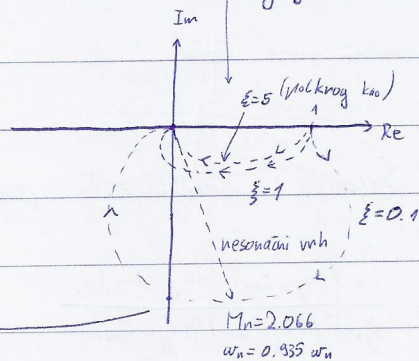 Im
ξ=5 (polkrog
1
Re
ξ=1
ξ=0.1
resonančni vrh
Mr=2.066
ωr=0.935 ωn